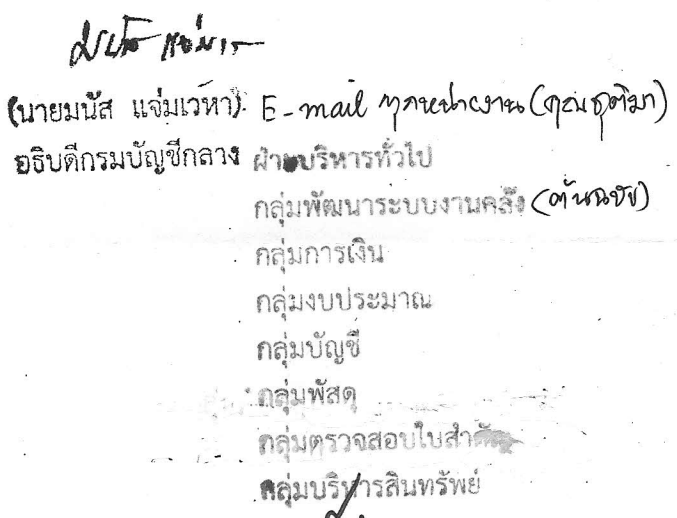 มนัส แจ่มเวหา
(นายมนัส แจ่มเวหา) E-mail ทุกหน่วยงาน (คุณธุติมา)
อธิบดีกรมบัญชีกลาง ฝ่ายบริหารทั่วไป
กลุ่มพัฒนาระบบงานคลัง (ต้นฉบับ)
กลุ่มการเงิน
กลุ่มงบประมาณ
กลุ่มบัญชี
กลุ่มพัสดุ
กลุ่มตรวจสอบใบสำคัญ
กลุ่มบริหารสินทรัพย์